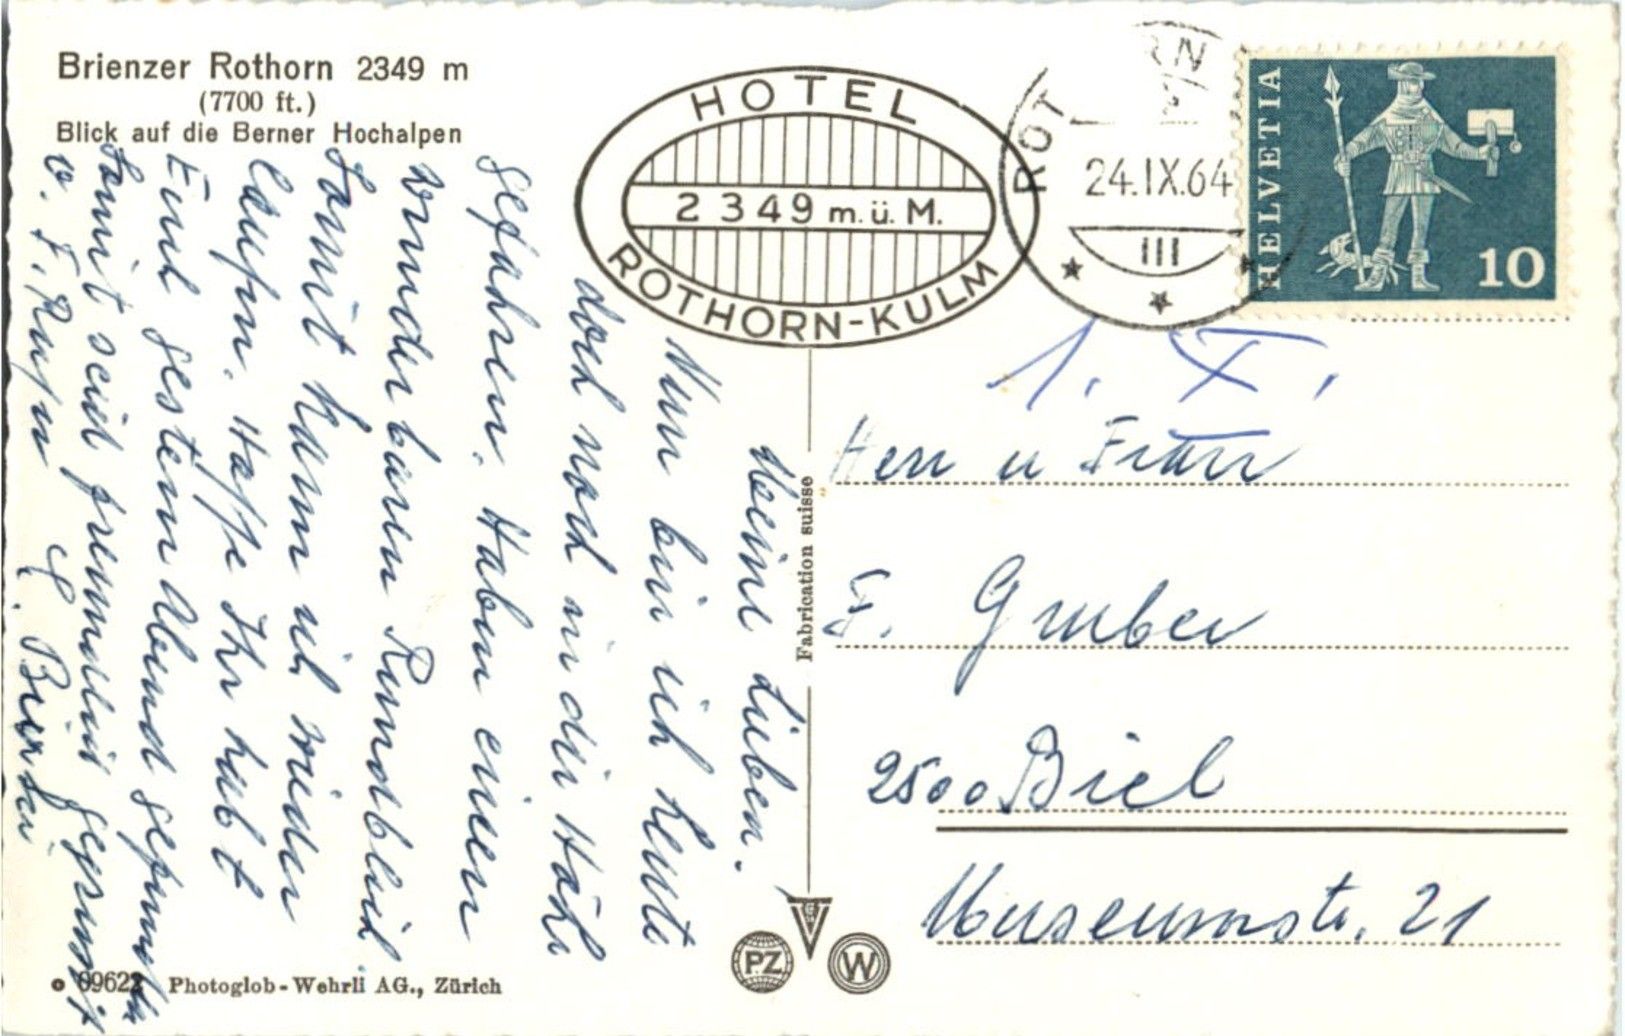 Brienzer Rothorn 2349 m
(7700 ft.)
Blick auf die Berner Hochalpen
HOTEL
2349 m.ü.M.
ROTHORN-KULM
ROT RN
24.IX.64
III
HELVETIA
10
1. X.
Meine Lieben.
Nun bin ich heute
doch noch in die Höhe
gefahren. Haben einen
wunderbaren Rundblick
Somit kann ich wieder
laufen. Hoffe Ihr habt
Emil gestern Abend gefunden
Somit seid freundlich gegrüsst
v. F.
Fabrication suisse
Herr u Frau
F. Gruber
2500 Biel
Museumstr. 21
PZ
W
Photoglob-Wehrli AG., Zürich